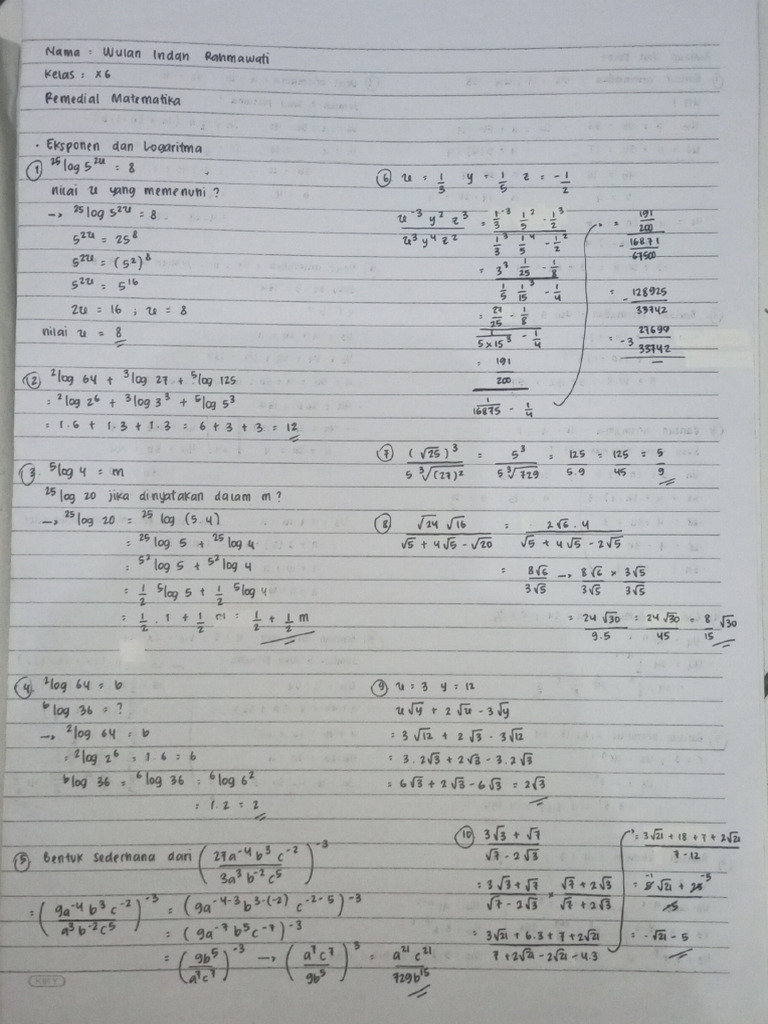 Nama : Wulan Indah Rahmawati
Kelas : X6
Remedial Matematika
• Eksponen dan Logaritma
① ²⁵log 5²ᵘ = 8
nilai u yang memenuhi ?
→ ²⁵log 5²ᵘ = 8
5²ᵘ = 25⁸
5²ᵘ = (5²)⁸
5²ᵘ = 5¹⁶
2u = 16 ; u = 8
nilai u = 8
② ²log 64 + ³log 27 + ⁵log 125
= ²log 2⁶ + ³log 3³ + ⁵log 5³
= 1.6 + 1.3 + 1.3 = 6 + 3 + 3 = 12
③ ⁵log 4 = m
²⁵log 20 jika dinyatakan dalam m ?
→ ²⁵log 20 = ²⁵log (5.4)
= ²⁵log 5 + ²⁵log 4
= 5² log 5 + 5² log 4
= 1/2 ⁵log 5 + 1/2 ⁵log 4
= 1/2 . 1 + 1/2 m = 1/2 + 1/2 m
④ ²log 64 = b
ᵇlog 36 = ?
→ ²log 64 = b
= ²log 2⁶ = 1.6 = 6
ᵇlog 36 = ⁶log 36 = ⁶log 6²
= 1.2 = 2
⑤ Bentuk sederhana dari (27a⁻⁴ b³ c⁻² / 3a³ b⁻² c⁵)⁻³
= (9a⁻⁴ b³ c⁻² / a³ b⁻² c⁵)⁻³ = (9a⁻⁴⁻³ b³⁻⁽⁻²⁾ c⁻²⁻⁵)⁻³
= (9a⁻⁷ b⁵ c⁻⁷)⁻³
= (9b⁵ / a⁷c⁷)⁻³ → (a⁷c⁷ / 9b⁵)³ = a²¹ c²¹ / 729b¹⁵
KIKY
⑥ u = 1/3 y = 1/5 z = -1/2
u⁻³ y² z³ / u³ y⁴ z² = 1/3⁻³ 1/5² - 1/2³ / 1/3³ 1/5⁴ - 1/2²
= 3³ 1/25 - 1/8 / 1/5 1/15³ - 1/4
= 27/25 - 1/8 / 1/5×15³ - 1/4
= 191/200 / 1/16875 - 1/4
= 191/200 / - 16871/67500
= - 128925/33742
= -3 27699/33742
⑦ (√25)³ / 5 ³√(27)² = 5³ / 5 ³√729 = 125 / 5.9 = 125 / 45 = 5 / 9
⑧ √24 √16 / √5 + 4√5 - √20 = 2√6 . 4 / √5 + 4√5 - 2√5
= 8√6 / 3√5 → 8√6 / 3√5 × 3√5 / 3√5
= 24√30 / 9.5 = 24√30 / 45 = 8/15 √30
⑨ u = 3 y = 12
u√y + 2√u - 3√y
= 3√12 + 2√3 - 3√12
= 3.2√3 + 2√3 - 3.2√3
= 6√3 + 2√3 - 6√3 = 2√3
⑩ 3√3 + √7 / √7 - 2√3
= 3√3 + √7 / √7 - 2√3 × √7 + 2√3 / √7 + 2√3
= 3√21 + 6.3 + 7 + 2√21 / 7 + 2√21 - 2√21 - 4.3
= 3√21 + 18 + 7 + 2√21 / 7 - 12
= 5√21 + 25 / -5
= -√21 - 5